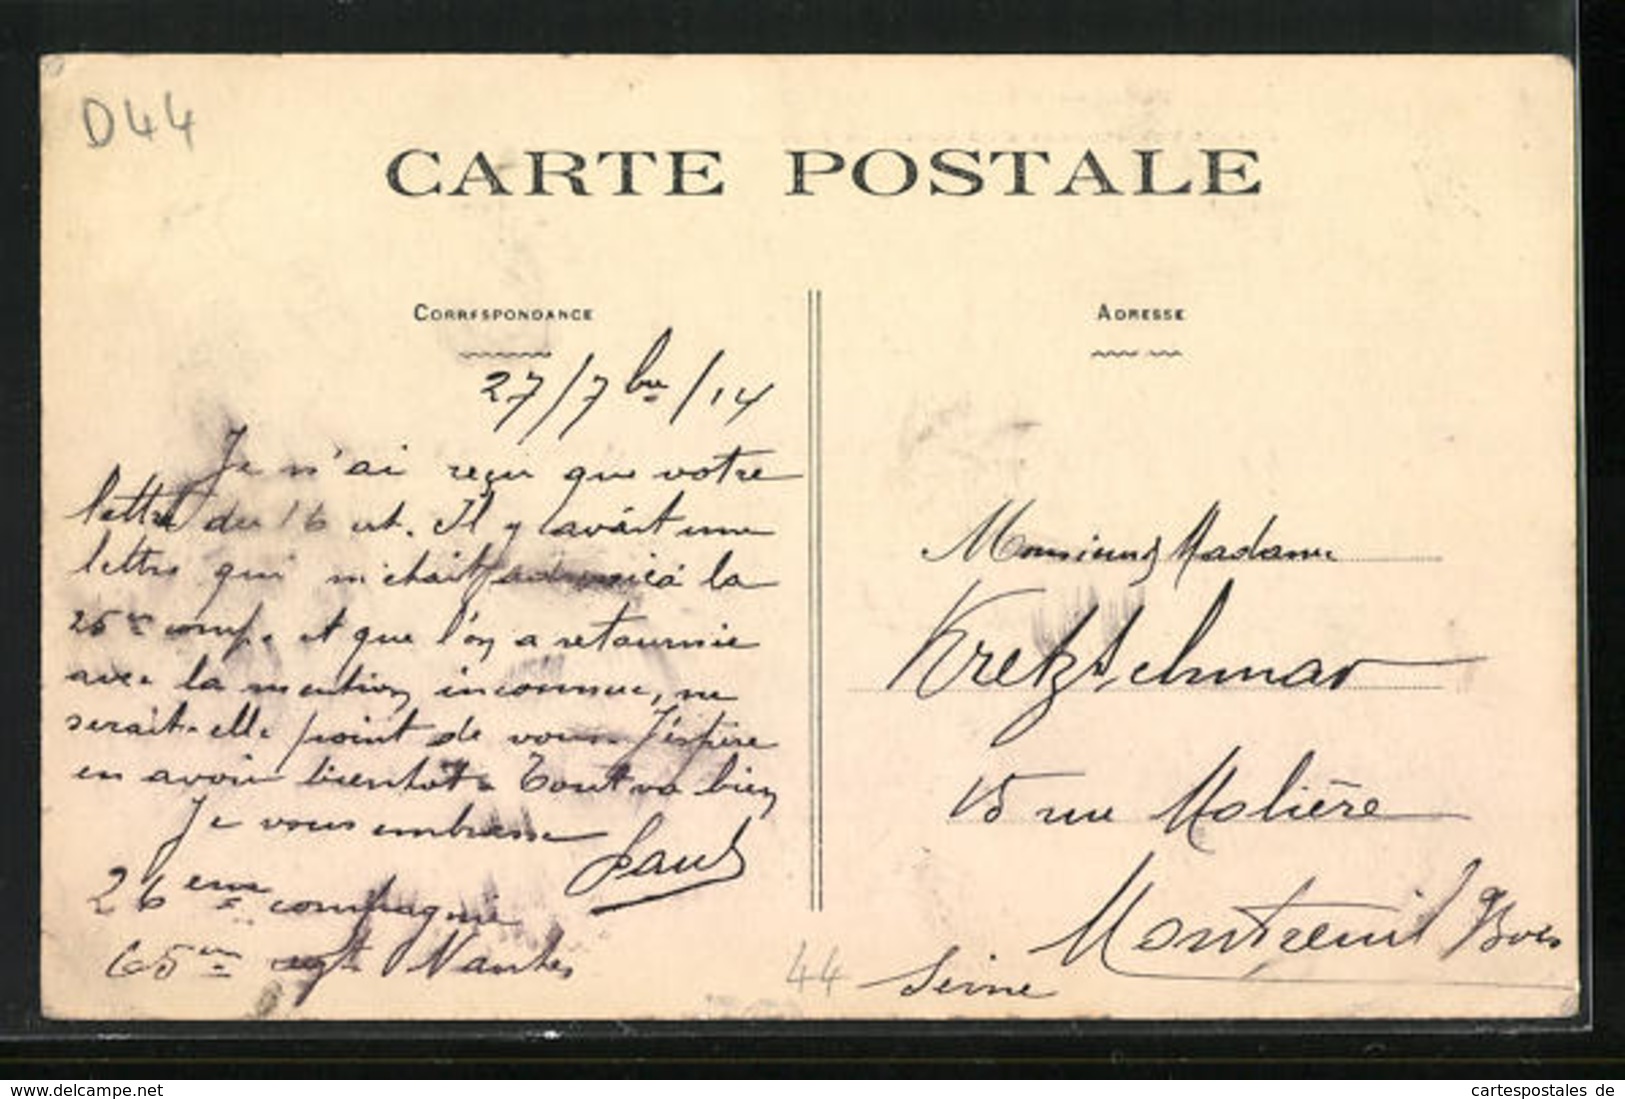 D44
CARTE POSTALE
CORRESPONDANCE
27/7bre/14
Je n'ai reçu que votre
lettre du 16 ct. Il y avait une
lettre qui m'était adressée à la
25me comp. et que l'on a retournée
avec la mention inconnue, ne
serait-elle point de vous. J'espère
en avoir bientôt. Tout va bien
Je vous embrasse
Paul
26eme compagnie
65me regt Nantes
44
ADRESSE
Monsieur & Madame
Kretzschmar
15 rue Molière
Montreuil s/Bois
Seine
delcampe.net
cartespostales de